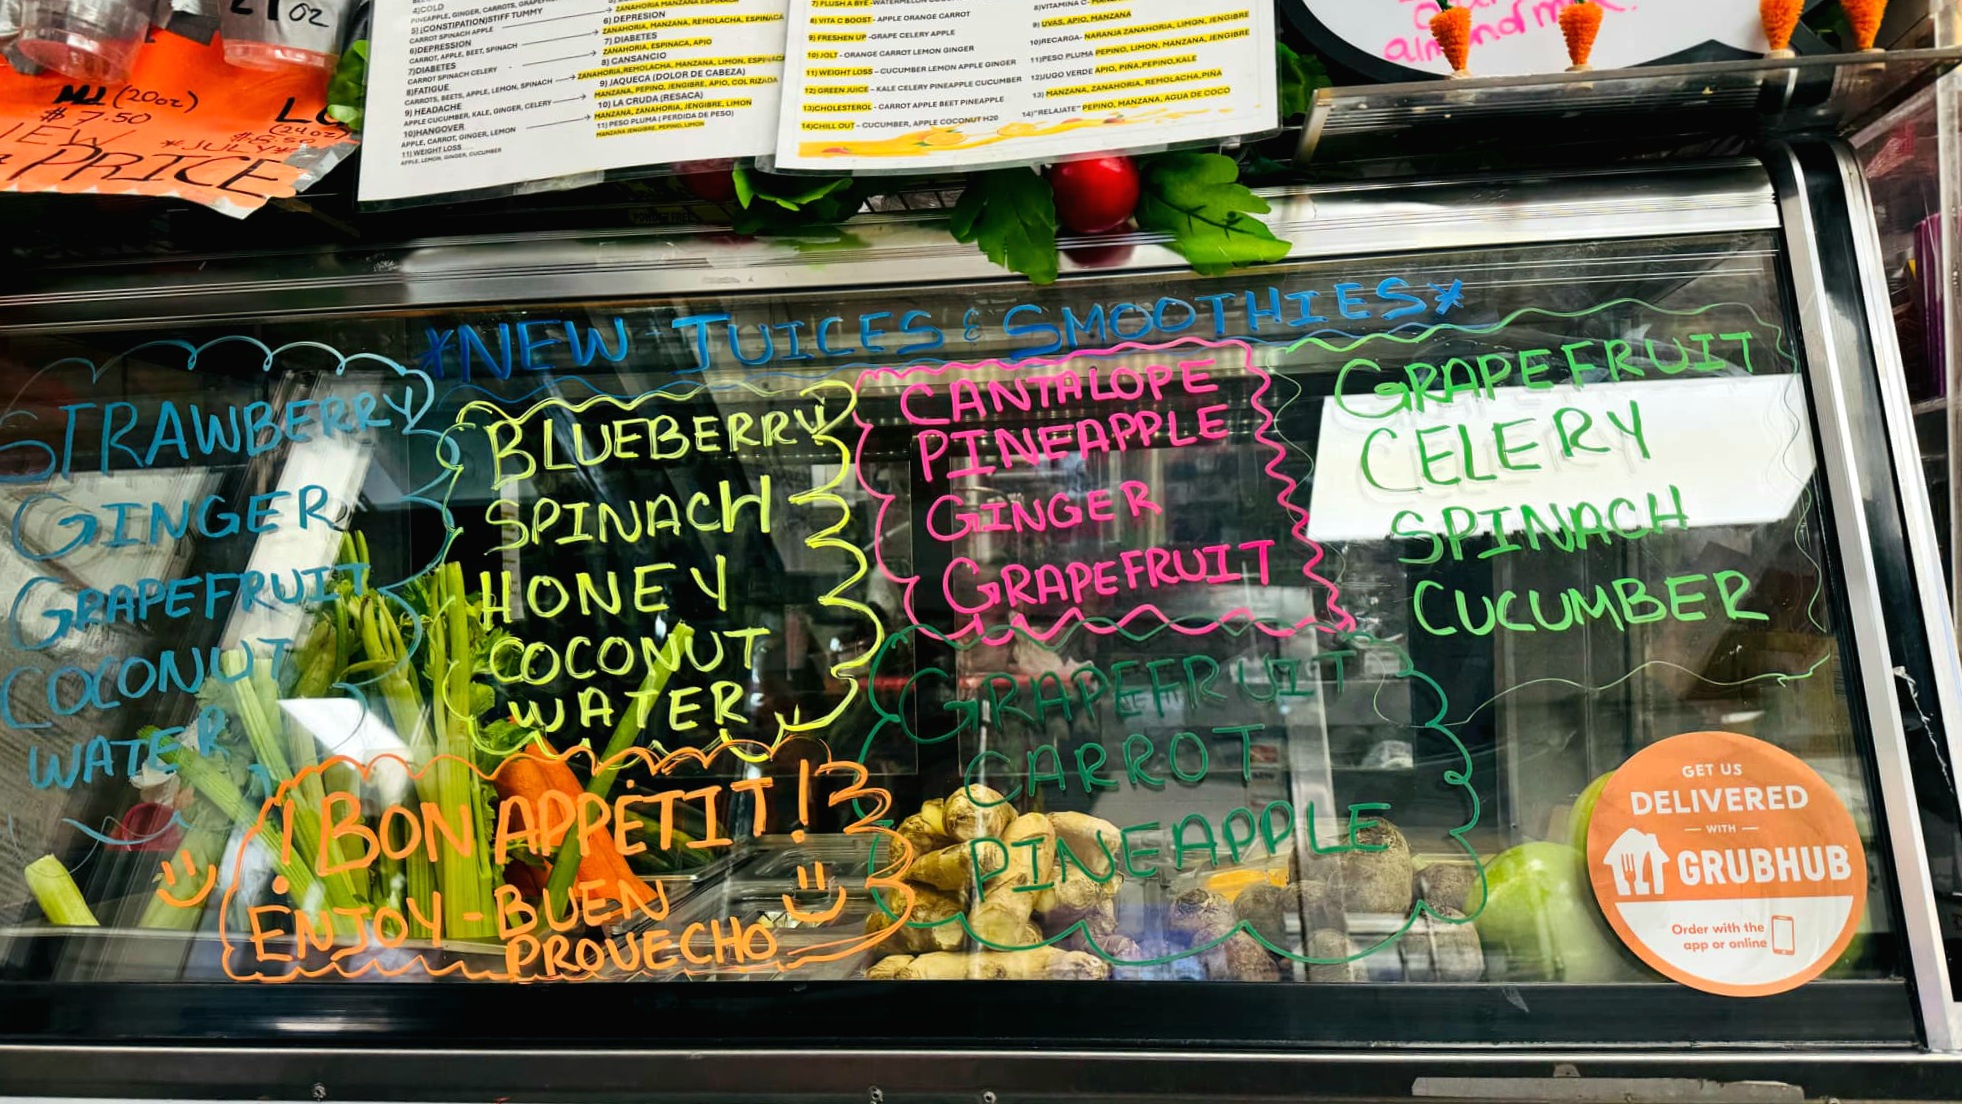 21 oz
(20oz)
$7.50
(24oz)
PRICE
4)COLD
PINEAPPLE, GINGER, CARROTS,
5) (CONSTIPATION)STIFF TUMMY
CARROT SPINACH APPLE
6)DEPRESSION
CARROT, APPLE, BEET, SPINACH
7)DIABETES
CARROT SPINACH CELERY
8)FATIGUE
CARROTS, BEETS, APPLE, LEMON, SPINACH
9) HEADACHE
APPLE CUCUMBER, KALE, GINGER, CELERY
10)HANGOVER
APPLE, CARROT, GINGER, LEMON
11) WEIGHT LOSS
APPLE, LEMON, GINGER, CUCUMBER
ZANAHORIA MANZANA ESPINACA
6) DEPRESION
ZANAHORIA, MANZANA, REMOLACHA, ESPINACA
7) DIABETES
ZANAHORIA, ESPINACA, APIO
8) CANSANCIO
ZANAHORIA,REMOLACHA, MANZANA, LIMON, ESPINACA
9) JAQUECA (DOLOR DE CABEZA)
MANZANA, PEPINO, JENGIBRE, APIO, COL RIZADA
10) LA CRUDA (RESACA)
MANZANA, ZANAHORIA, JENGIBRE, LIMON
11) PESO PLUMA ( PERDIDA DE PESO)
MANZANA JENGIBRE, PEPINO, LIMON
7) FLUSH A BYE
8) VITA C BOOST - APPLE ORANGE CARROT
9) FRESHEN UP -GRAPE CELERY APPLE
10) JOLT - ORANGE CARROT LEMON GINGER
11) WEIGHT LOSS - CUCUMBER LEMON APPLE GINGER
12) GREEN JUICE - KALE CELERY PINEAPPLE CUCUMBER
13)CHOLESTEROL - CARROT APPLE BEET PINEAPPLE
14)CHILL OUT - CUCUMBER, APPLE COCONUT H20
8)VITAMINA C-
9) UVAS, APIO, MANZANA
10)RECARGA- NARANJA ZANAHORIA, LIMON, JENGIBRE
11)PESO PLUMA PEPINO, LIMON, MANZANA, JENGIBRE
12)JUGO VERDE APIO, PIÑA,PEPINO,KALE
13) MANZANA, ZANAHORIA, REMOLACHA,PIÑA
14)"RELAJATE" PEPINO, MANZANA, AGUA DE COCO
almond milk.
*NEW JUICES & SMOOTHIES*
STRAWBERRY
GINGER
GRAPEFRUIT
COCONUT
WATER
BLUEBERRY
SPINACH
HONEY
COCONUT
WATER
CANTALOPE
PINEAPPLE
GINGER
GRAPEFRUIT
GRAPEFRUIT
CELERY
SPINACH
CUCUMBER
GRAPEFRUIT
CARROT
PINEAPPLE
¡BON APPÉTIT!
ENJOY - BUEN
PROVECHO
GET US
DELIVERED
— WITH —
GRUBHUB
Order with the
app or online